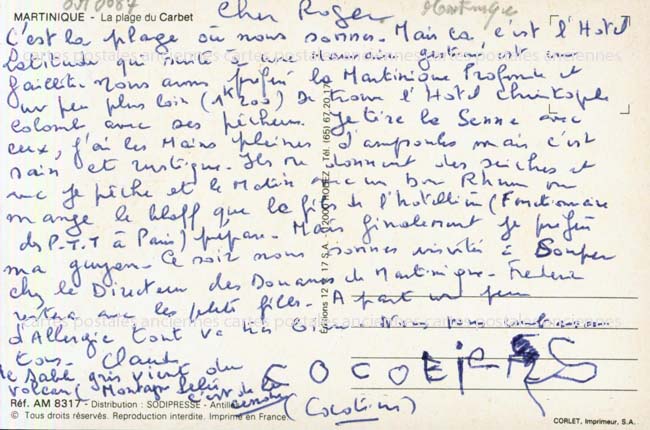 Cher Roger
Martinique
MARTINIQUE - La plage du Carbet
C'est la plage où nous sommes. Mais ça c'est l'Hotel
qui suite à une mauvaise gestion, est en
faillite. Nous avons préféré la Martinique Profonde et
un peu plus loin (1K200) se trouve l'Hotel Christophe
Colomb avec ses pêcheurs. Je tire la Senne avec
eux, j'ai les Mains pleines d'ampoules mais c'est
sain et rustique. Ils me donnent des seiches et
avec je pêche et le Matin avec un bon Rhum on
mange le bloff que le fils de l'hotellier (Fonctionnaire
des P.T.T à Paris) prépare. Mais finalement je préfère
ma guyane. Ce soir nous sommes invités à Souper
chez le Directeur des Douanes de Martinique. Frederic
restera avec les petites filles. A part un peu
d'Allergie tout va
tous. Claude
le sable gris vient du
volcan (Montagne Pelée
c'est de la
cendre)
COCOTIERS
(Cocotiers)
Réf. AM 8317 - Distribution : SODIPRESSE - Antilles
© Tous droits réservés. Reproduction interdite. Imprimé en France
CORLET, Imprimeur, S.A.
cartes postales anciennes cartes postales anciennes cartes postales anciennes